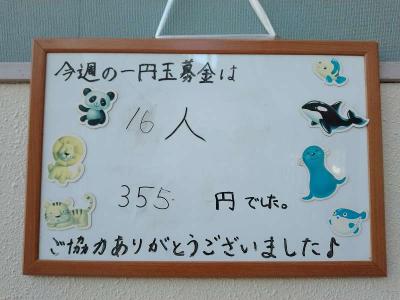 今週の一円玉募金は
16人
355 円でした。
ご協力ありがとうございました♪